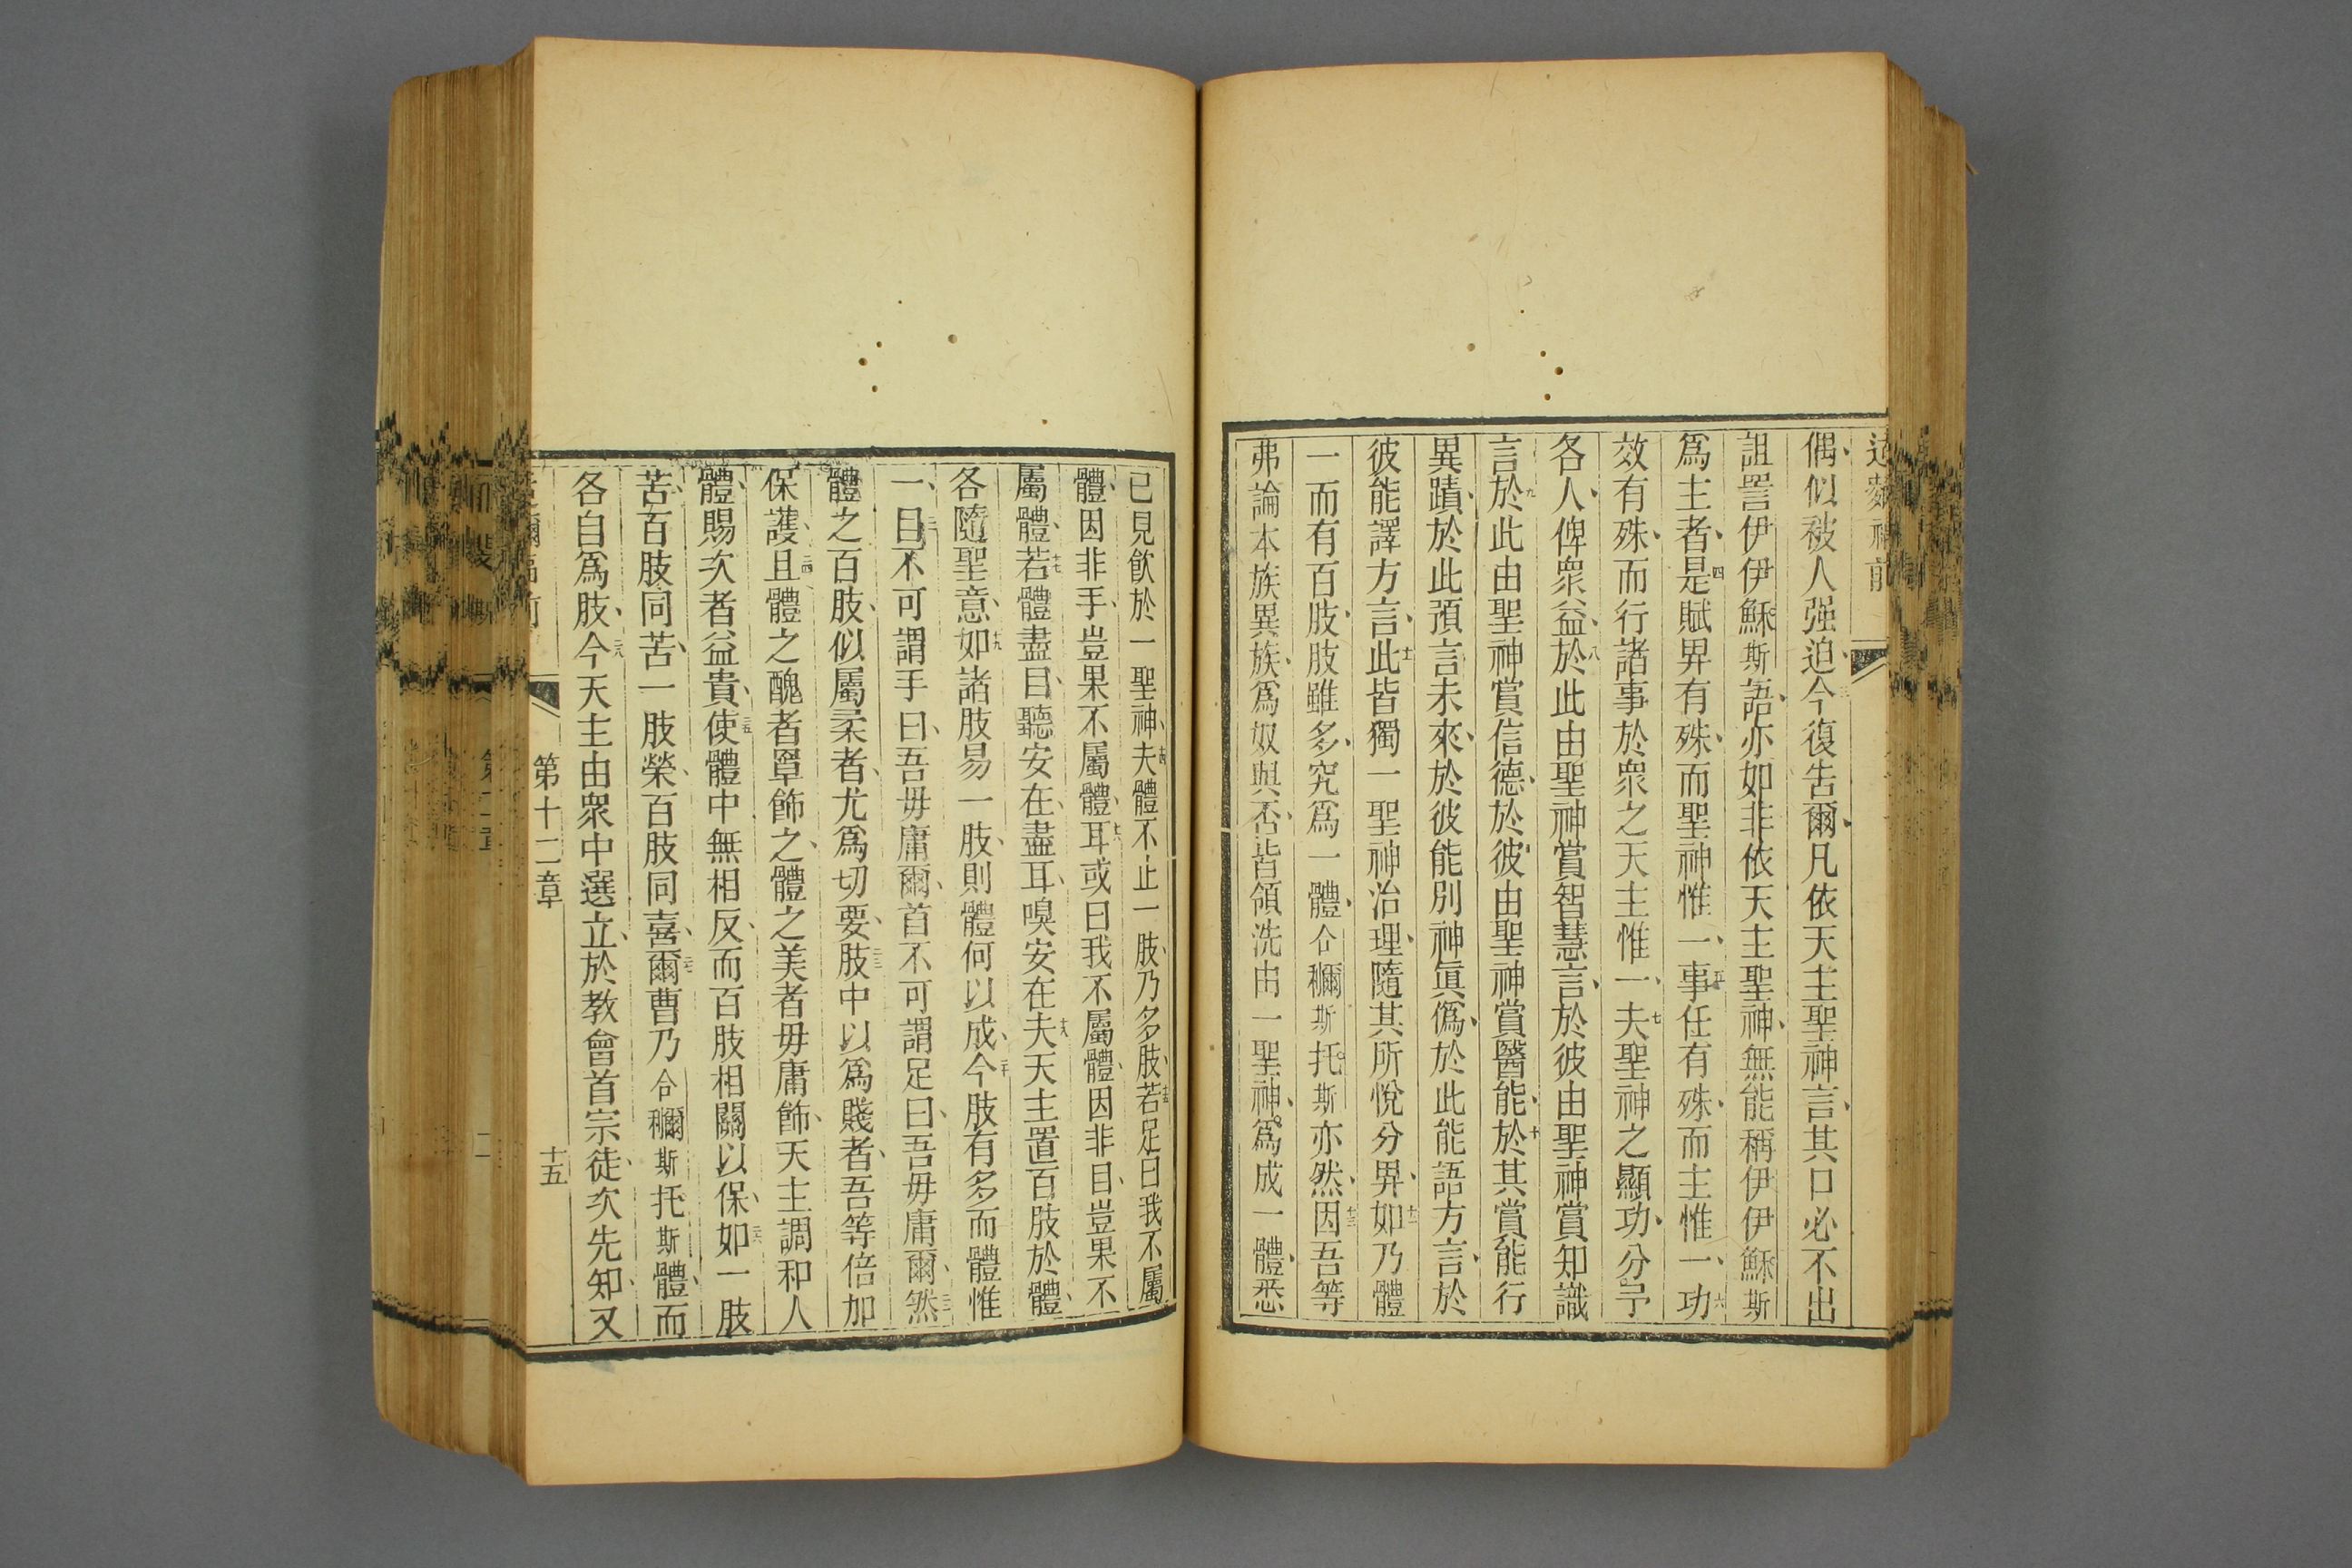 偶、似被人强迫、三今復吿爾、凡依天主聖神言、其口必不出
詛詈伊伊穌斯語、亦如非依天主聖神、無能稱伊伊穌斯
爲主者、四是賦畀有殊、而聖神惟一、五事任有殊、而主惟一、六功
效有殊、而行諸事於衆之天主惟一、七夫聖神之顯功、分予
各人、俾衆益、八於此由聖神賞智慧言、於彼由聖神賞知識
言、九於此由聖神賞信德、於彼由聖神賞醫能、十於其賞能行
異蹟、於此預言未來、於彼能別神眞僞、於此能語方言、於
彼能譯方言、十一此皆獨一聖神治理、隨其所悅分畀、十二如乃體
一而有百肢、肢雖多、究爲一體、合穪斯托斯亦然、十三因吾等
弗論本族異族、爲奴與否、皆領洗由一聖神、爲成一體、悉
已見飲於一聖神、十四夫體不止一肢、乃多肢、十五若足曰我不屬
體、因非手、豈果不屬體、十六耳或曰我不屬體、因非目、豈果不
屬體、十七若體盡目、聽安在、盡耳、嗅安在、十八夫天主置百肢於體、
各隨聖意、十九如諸肢易一肢、則體何以成、二十今肢有多而體惟
一、二一目不可謂手曰、吾毋庸爾、首不可謂足曰、吾毋庸爾、二二然
體之百肢、似屬柔者、尤爲切要、二三肢中以爲賤者、吾等倍加
保護、二四且體之醜者覃飾之、體之美者毋庸飾、天主調和人
體、賜次者益貴、二五使體中無相反、而百肢相關以保、二六如一肢
苦、百肢同苦、一肢榮、百肢同喜、二七爾曹乃合穪斯托斯體、而
各自爲肢、二八今天主由衆中選立、於教會首宗徒、次先知、又
第十二章
十五